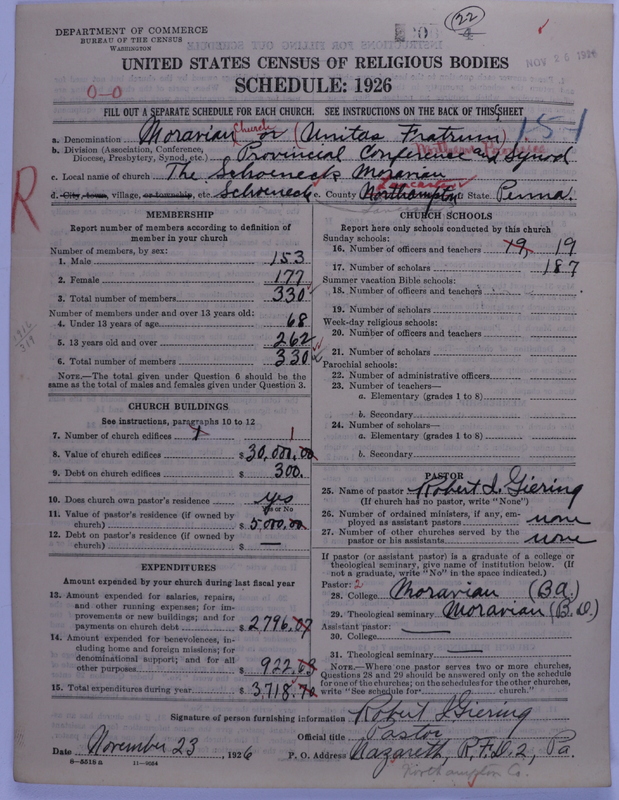 DEPARTMENT OF COMMERCE
BUREAU OF THE CENSUS
WASHINGTON
22
4
NOV 26 1926
UNITED STATES CENSUS OF RELIGIOUS BODIES
SCHEDULE: 1926
0-0
FILL OUT A SEPARATE SCHEDULE FOR EACH CHURCH. SEE INSTRUCTIONS ON THE BACK OF THIS SHEET
a. Denomination Moravian Church or (Unitas Fratrum) 151
b. Division (Association, Conference, Diocese, Presbytery, Synod, etc.) Provincial Conference and Synod
c. Local name of church The Schoeneck Moravian
d. City, town, village, or township, etc. Schoeneck e. County Northampton Lancaster f. State Penna.
R
MEMBERSHIP
Report number of members according to definition of
member in your church
Number of members, by sex:
1. Male 153
2. Female 177
3. Total number of members 330
Number of members under and over 13 years old:
4. Under 13 years of age 68
5. 13 years old and over 262
6. Total number of members 330
NOTE.—The total given under Question 6 should be
same as the total of males and females given under Question 3.
CHURCH BUILDINGS
See instructions, paragraphs 10 to 12
7. Number of church edifices 1 1
8. Value of church edifices $ 30,000.00
9. Debt on church edifices $ 300.
10. Does church own pastor's residence yes
Yes or No
11. Value of pastor's residence (if owned by
church) $ 5,000.00
12. Debt on pastor's residence (if owned by
church) $ —
EXPENDITURES
Amount expended by your church during last fiscal year
13. Amount expended for salaries, repairs,
and other running expenses; for im-
provements or new buildings; and for
payments on church debt $ 2796.07
14. Amount expended for benevolences, in-
cluding home and foreign missions; for
denominational support; and for all
other purposes $ 922.63
15. Total expenditures during year $ 3,718.70
CHURCH SCHOOLS
Report here only schools conducted by this church
Sunday schools:
16. Number of officers and teachers 19, 19
17. Number of scholars 187
Summer vacation Bible schools:
18. Number of officers and teachers
19. Number of scholars
Week-day religious schools:
20. Number of officers and teachers
21. Number of scholars
Parochial schools:
22. Number of administrative officers
23. Number of teachers—
a. Elementary (grades 1 to 8)
b. Secondary
24. Number of scholars—
a. Elementary (grades 1 to 8)
b. Secondary
PASTOR
25. Name of pastor Robert I. Giering
(If church has no pastor, write "None")
26. Number of ordained ministers, if any, em-
ployed as assistant pastors none
27. Number of other churches served by the
pastor or his assistants none
If pastor (or assistant pastor) is a graduate of a college or
theological seminary, give name of institution below. (If
not a graduate, write "No" in the space indicated.)
Pastor: 2
28. College Moravian (B.A.)
29. Theological seminary Moravian (B.D.)
Assistant pastor:
30. College —
31. Theological seminary —
NOTE.—Where one pastor serves two or more churches,
Questions 28 and 29 should be answered only on the schedule
for one of the churches; on the schedules for the other churches,
write "See schedule for church."
Signature of person furnishing information Robert I. Giering
Official title Pastor
Date November 23, 1926 P. O. Address Nazareth, R.F.D. 2, Pa.
8-5518 a 11-9564
Northampton Co.